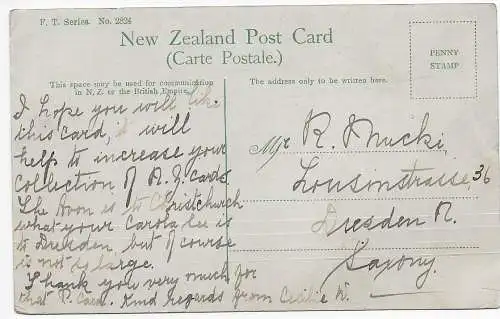 F. T. Series. No. 2824
New Zealand Post Card
(Carte Postale.)
PENNY
STAMP
This space may be used for communication
in N.Z. or the British Empire.
The address only to be written here.
I hope you will like
this card, it will
help to increase your
collection of N.Z. Cards.
The Avon is to Christchurch
what your Carola See is
to Dresden, but of course
is not so large.
Thank you very much for
that P. Card. Kind regards from Cecilie W.
Mr R. Mucki,
36
Dresden N.
Saxony.